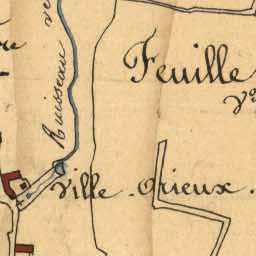 Feuille
Ruisseau
Ville - Orieux.